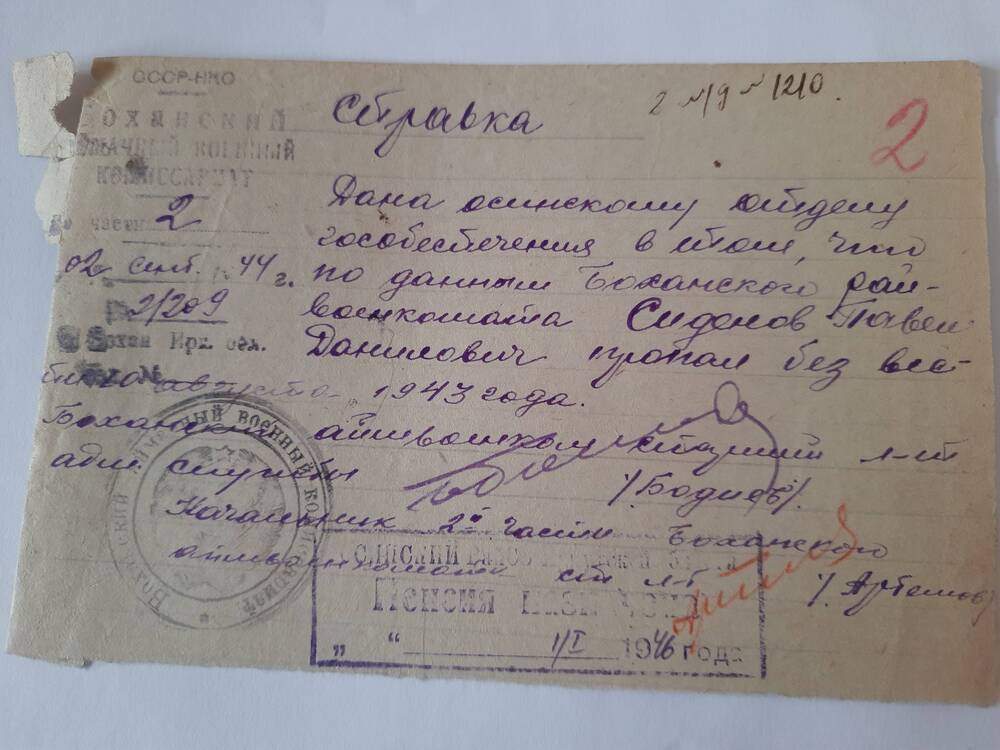 СССР-НКО
Боханский
Аймачный военный
комиссариат
По части 2
02 сент. 44 г.
№ 2/209
с. Бохан Ирк. обл.
2 л/9 № 1210.
2
Справка
Дана осинскому отделу
гособеспечения в том, что
по данным Боханского рай-
военкомата Сидонов Павел
Данилович пропал без вес-
ти августа 1943 года.
Боханский аймвоенком старший л-нт
адм службы /Бодиев/.
Начальник 2й части Боханского
аймвоенкомата ст л-т /Артемов/
Боханский Аймачный военный комиссариат
Пенсия
„ “ 1/I 1946 года